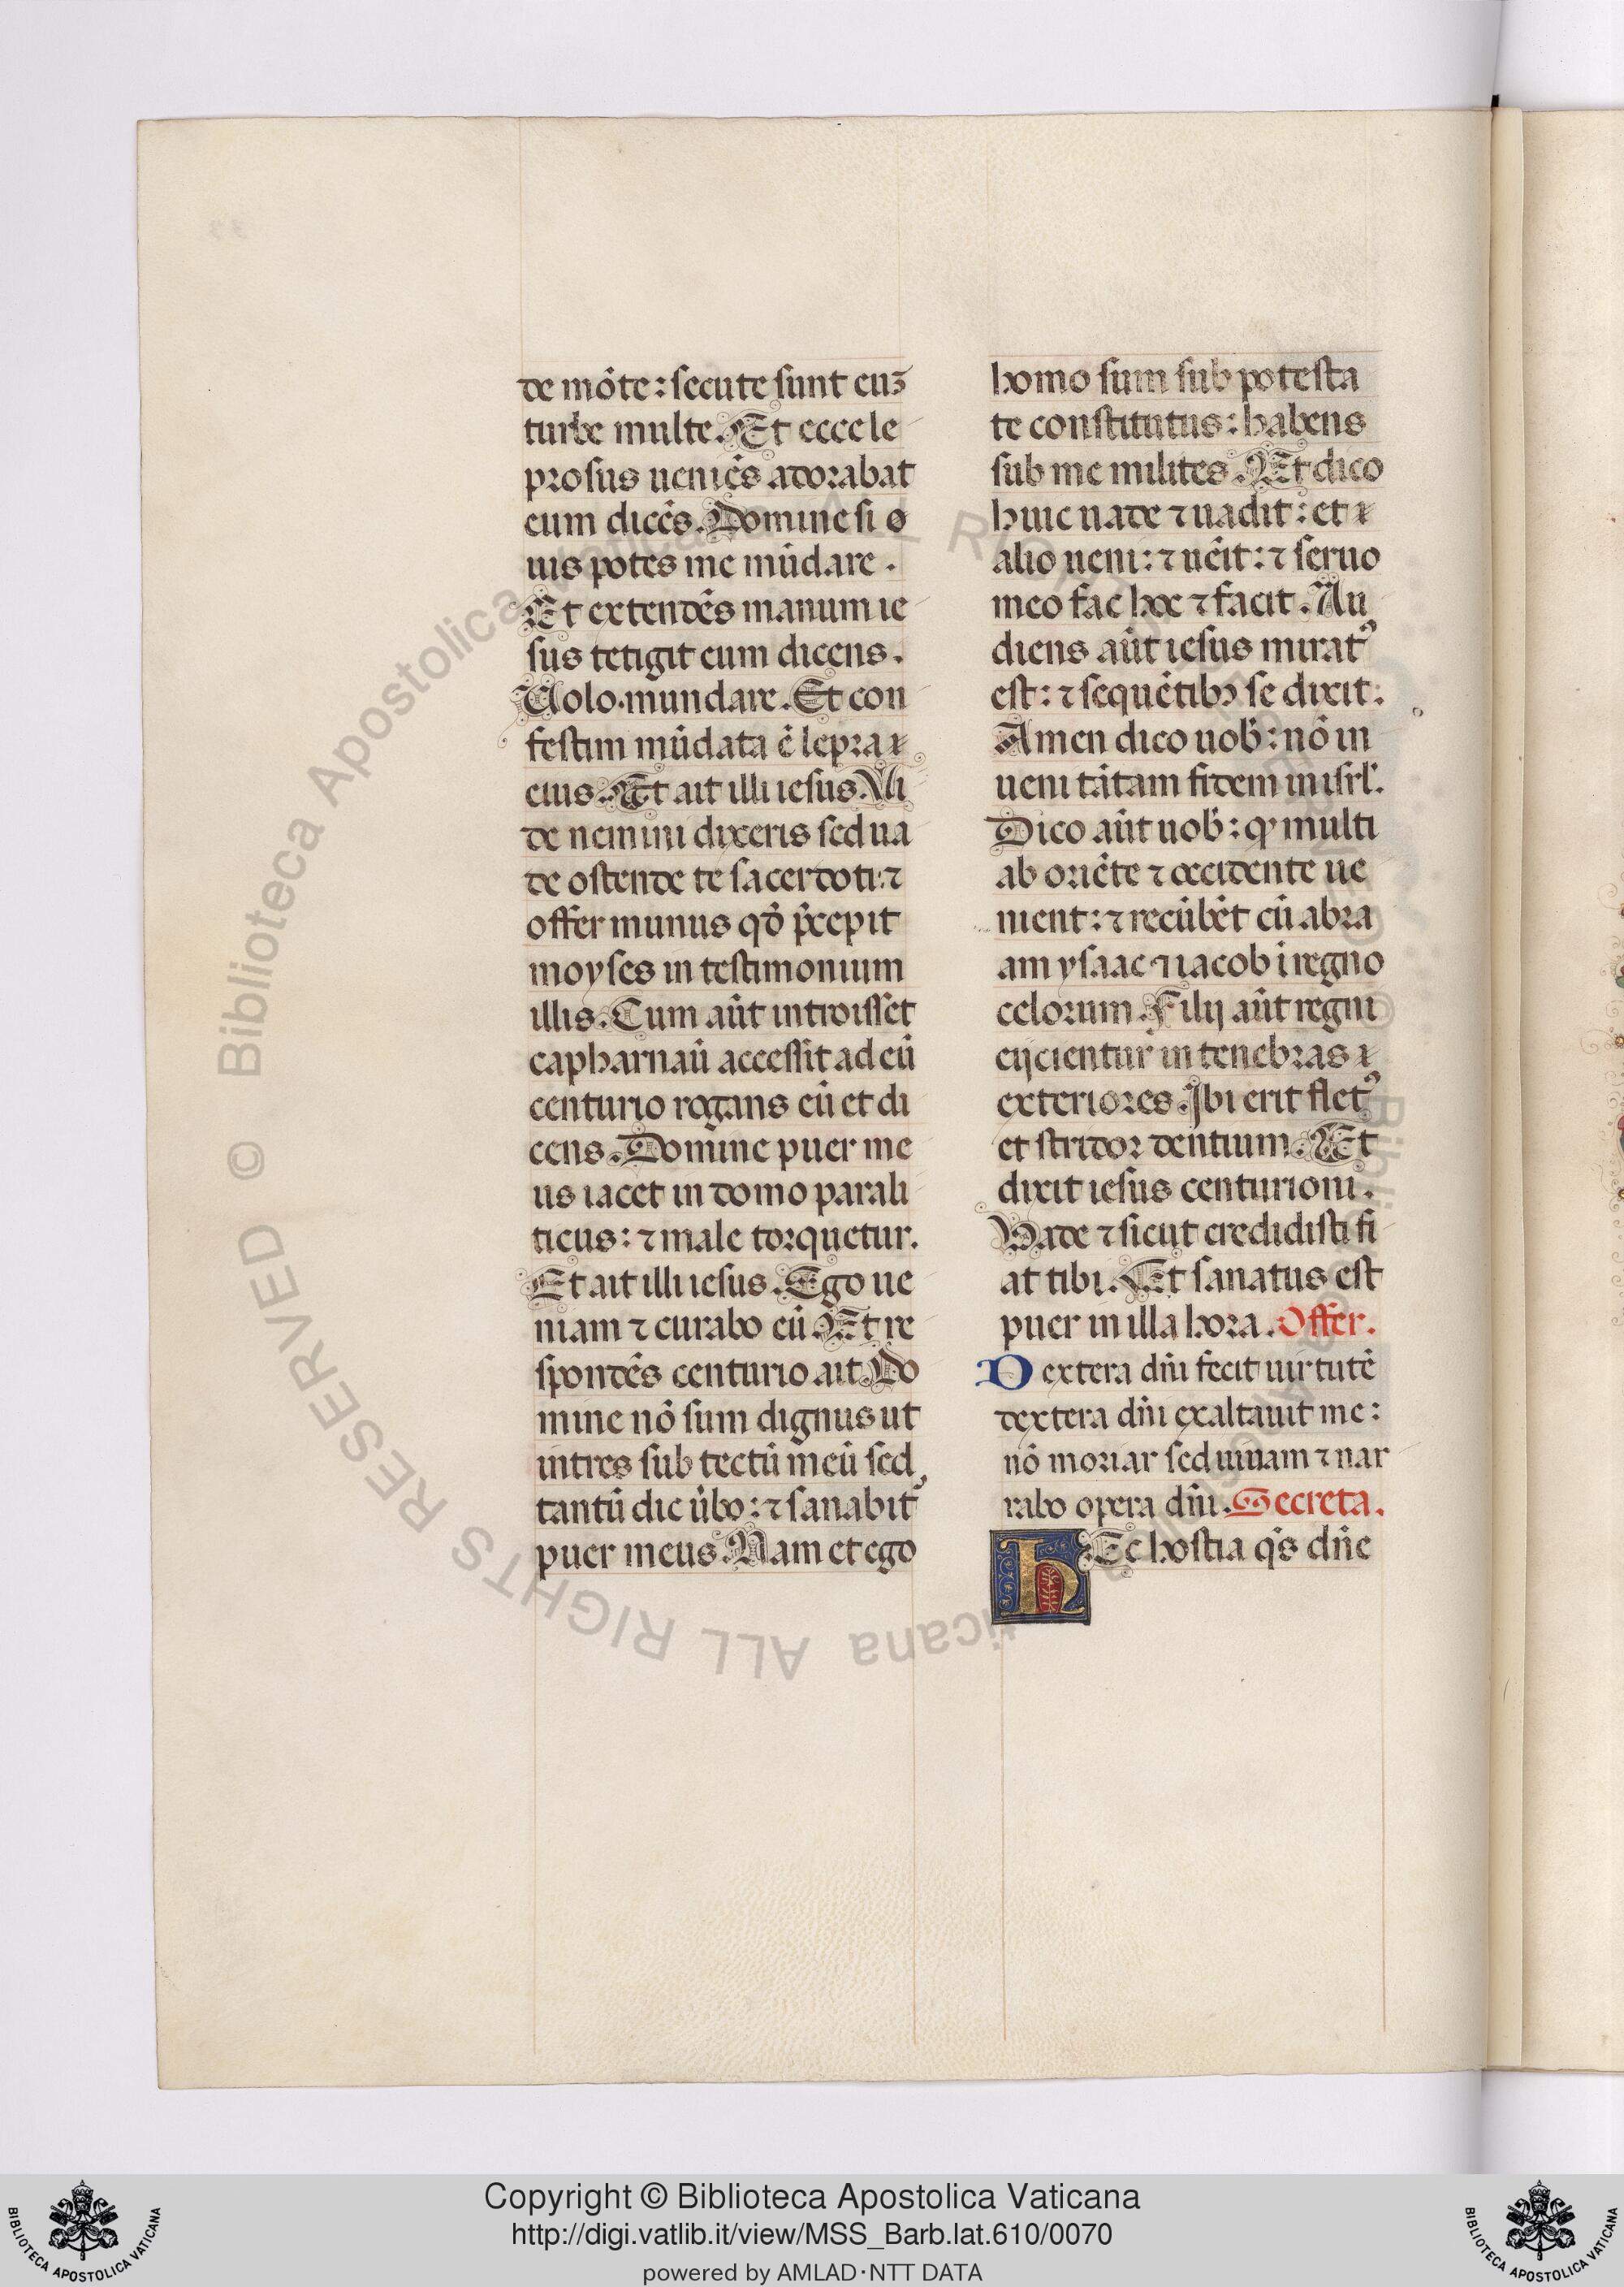 de mōte : secute sunt euʒ
turbe multe. Et ecce le
prosus ueniēs adorabat
eum dicēs. Domine si ø
uis potes me mūdare.
Et extendēs manum ie
sus tetigit eum dicens.
Uolo. mundare. Et con
festim mūdata ē lepra
eius. Et ait illi iesus. Ui
de nemini dixeris sed ua
de ostende te sacerdoti : ⁊
offer munus qđ p̄cepit
moyses in testimonium
illis. Cum aūt introisset
capharnaū accessit ad eū
centurio rogans eū et di
cens. Domine puer me
us iacet in domo parali
ticus : ⁊ male torquetur.
Et ait illi iesus. Ego ue
niam ⁊ curabo eū. Et re
spondēs centurio ait. Do
mine nō sum dignus ut
intres sub tectū meū sed
tantū dic ūbo : ⁊ sanabitꝰ
puer meus. Nam et ego
homo sum sub potesta
te constitutus : habens
sub me milites. Et dico
huic uade ⁊ uadit : et
alio ueni : ⁊ uēit : ⁊ seruo
meo fac hoc ⁊ facit. Au
diens aūt iesus miratꝰ
est : ⁊ sequētibꝫ se dixit :
Amen dico uob̄ : nō in
ueni tātam fidem in isrl̄.
Dico aūt uob̄ : ꝙ multi
ab oriēte ⁊ occidente ue
nient : ⁊ recūbēt cū abra
am ysaac ⁊ iacob i regno
celorum. Filij aūt regni
eijcientur in tenebras
exteriores. Ibi erit fletꝰ
et stridor dentium. Et
dixit iesus centurioni.
Uade ⁊ sicut credidisti fi
at tibi. Et sanatus est
puer in illa hora. Offer.
Dextera dn̄i fecit uirtutē
dextera dn̄i exaltauit me :
nō moriar sed uiuam ⁊ nar
rabo opera dn̄i. Secreta.
HEc hostia qs̄ dn̄e
© Biblioteca Apostolica Vaticana ALL RIGHTS RESERVED
Copyright © Biblioteca Apostolica Vaticana
http://digi.vatlib.it/view/MSS_Barb.lat.610/0070
powered by AMLAD·NTT DATA
BIBLIOTECA APOSTOLICA VATICANA
BIBLIOTECA APOSTOLICA VATICANA